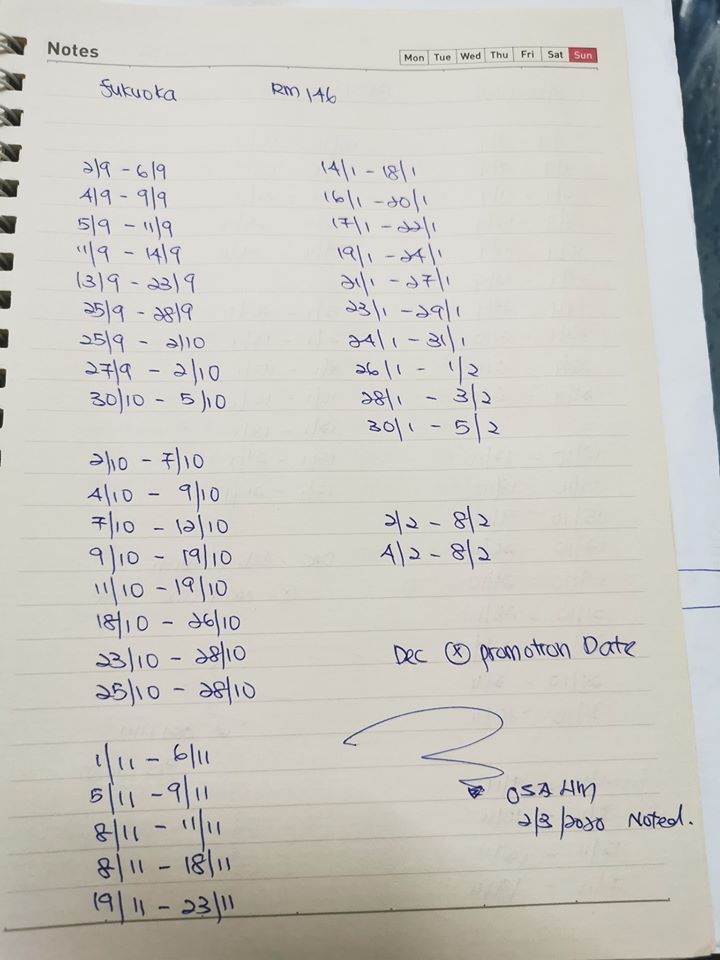 Notes
Mon Tue Wed Thu Fri Sat Sun
Fukuoka RM 146
2/9 - 6/9
4/9 - 9/9
5/9 - 11/9
11/9 - 14/9
13/9 - 23/9
25/9 - 28/9
25/9 - 2/10
27/9 - 2/10
30/10 - 5/10
2/10 - 7/10
4/10 - 9/10
7/10 - 12/10
9/10 - 19/10
11/10 - 19/10
18/10 - 26/10
23/10 - 28/10
25/10 - 28/10
1/11 - 6/11
5/11 - 9/11
8/11 - 11/11
8/11 - 18/11
19/11 - 23/11
14/1 - 18/1
16/1 - 20/1
17/1 - 22/1
19/1 - 24/1
21/1 - 27/1
23/1 - 29/1
24/1 - 31/1
26/1 - 1/2
28/1 - 3/2
30/1 - 5/2
2/2 - 8/2
4/2 - 8/2
Dec ⓧ promotion Date
2/3/2020 Noted.